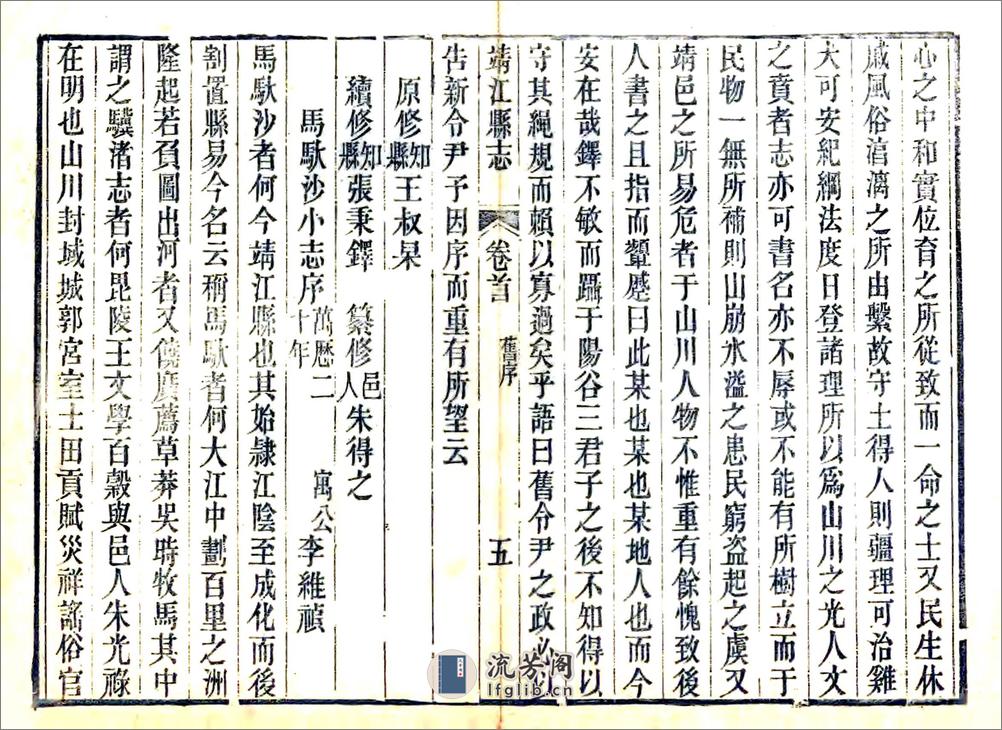 心之中和實位育之所從致而一命之士又民生休
戚風俗淯漓之所由繫故守土得人則疆理可治雖
大可安紀綱法度日登諸理所以爲山川之光人文
之賁者志亦可書名亦不辱或不能有所樹立而于
民物一無所補則山崩水溢之患民窮盜起之虞又
靖邑之所易危者于山川人物不惟重有餘愧致後
人書之且指而顰蹙曰此某也某也某地人也而今
安在哉鐸不敏而躡于陽谷三君子之後不知得以
守其繩規而賴以寡過矣乎語曰舊令尹之政必以
靖江縣志 卷首 舊序 五
告新令尹予因序而重有所望云
原修知縣王叔杲
續修知縣張秉鐸 纂修邑人朱得之
馬馱沙小志序 萬歷二十年 寓公李維禎
馬馱沙者何今靖江縣也其始隷江陰至成化而後
割置縣易今名云稱馬馱者何大江中劃百里之洲
隆起若負圖出河者又饒廣薦草莽吳時牧馬其中
謂之驥渚志者何毘陵王文學百穀與邑人朱光祿
在明也山川封域城郭宮室土田貢賦災祥謠俗官
流芳閣
lfglib.cn